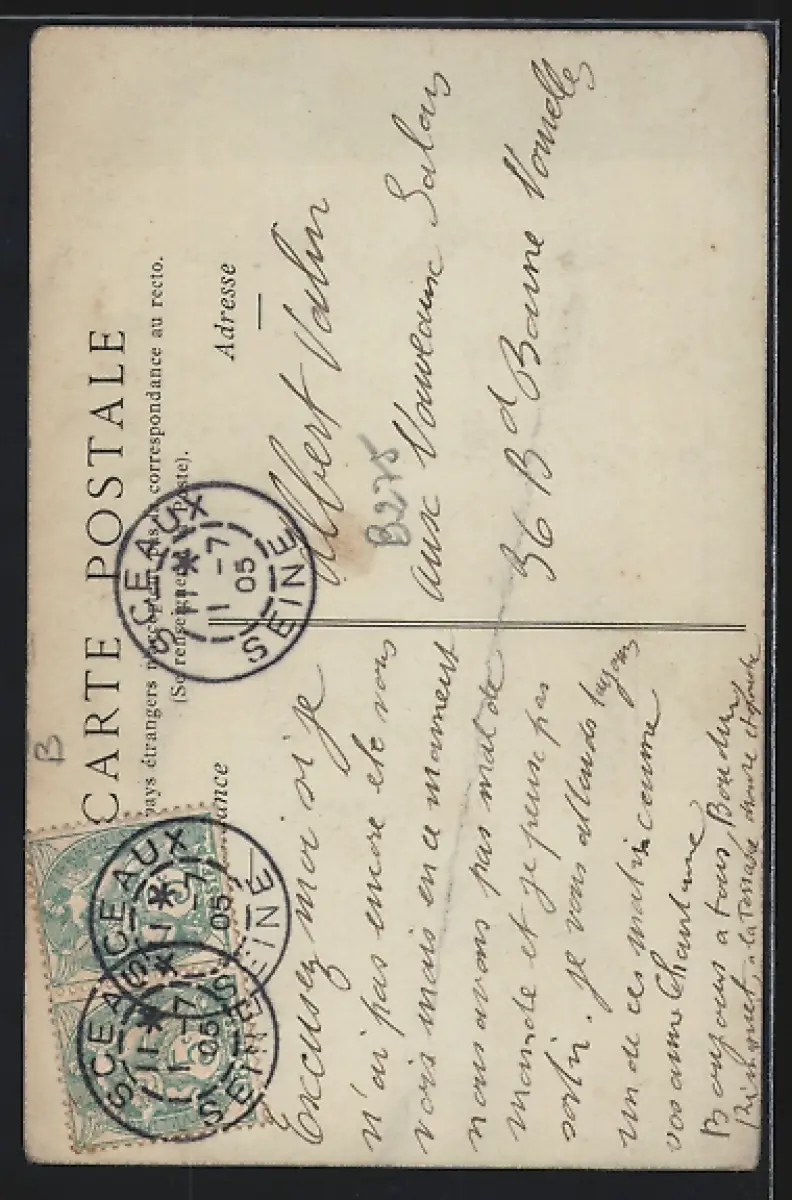 CARTE POSTALE
pays étrangers n'acceptent pas la correspondance au recto.
(Se renseigner à la Poste).
Adresse
B
SCEAUX
11 *
1 -7
05
SEINE
SCEAUX
11 *
1 -7
05
SEINE
SCEAUX
11 *
1 -7
05
SEINE
Excusez moi si je
n'ai pas encore été vous
voir mais en ce moment
nous avons pas mal de
monde et je peux pas
sortir. je vous attends toujours
un de ces matin comme
vos anne
Bonjour a tous,
a la Terrasse droite et gauche
Albert Vahn
B275
aux Nouveaux Salons
36 Bd Bonne Nouvelle